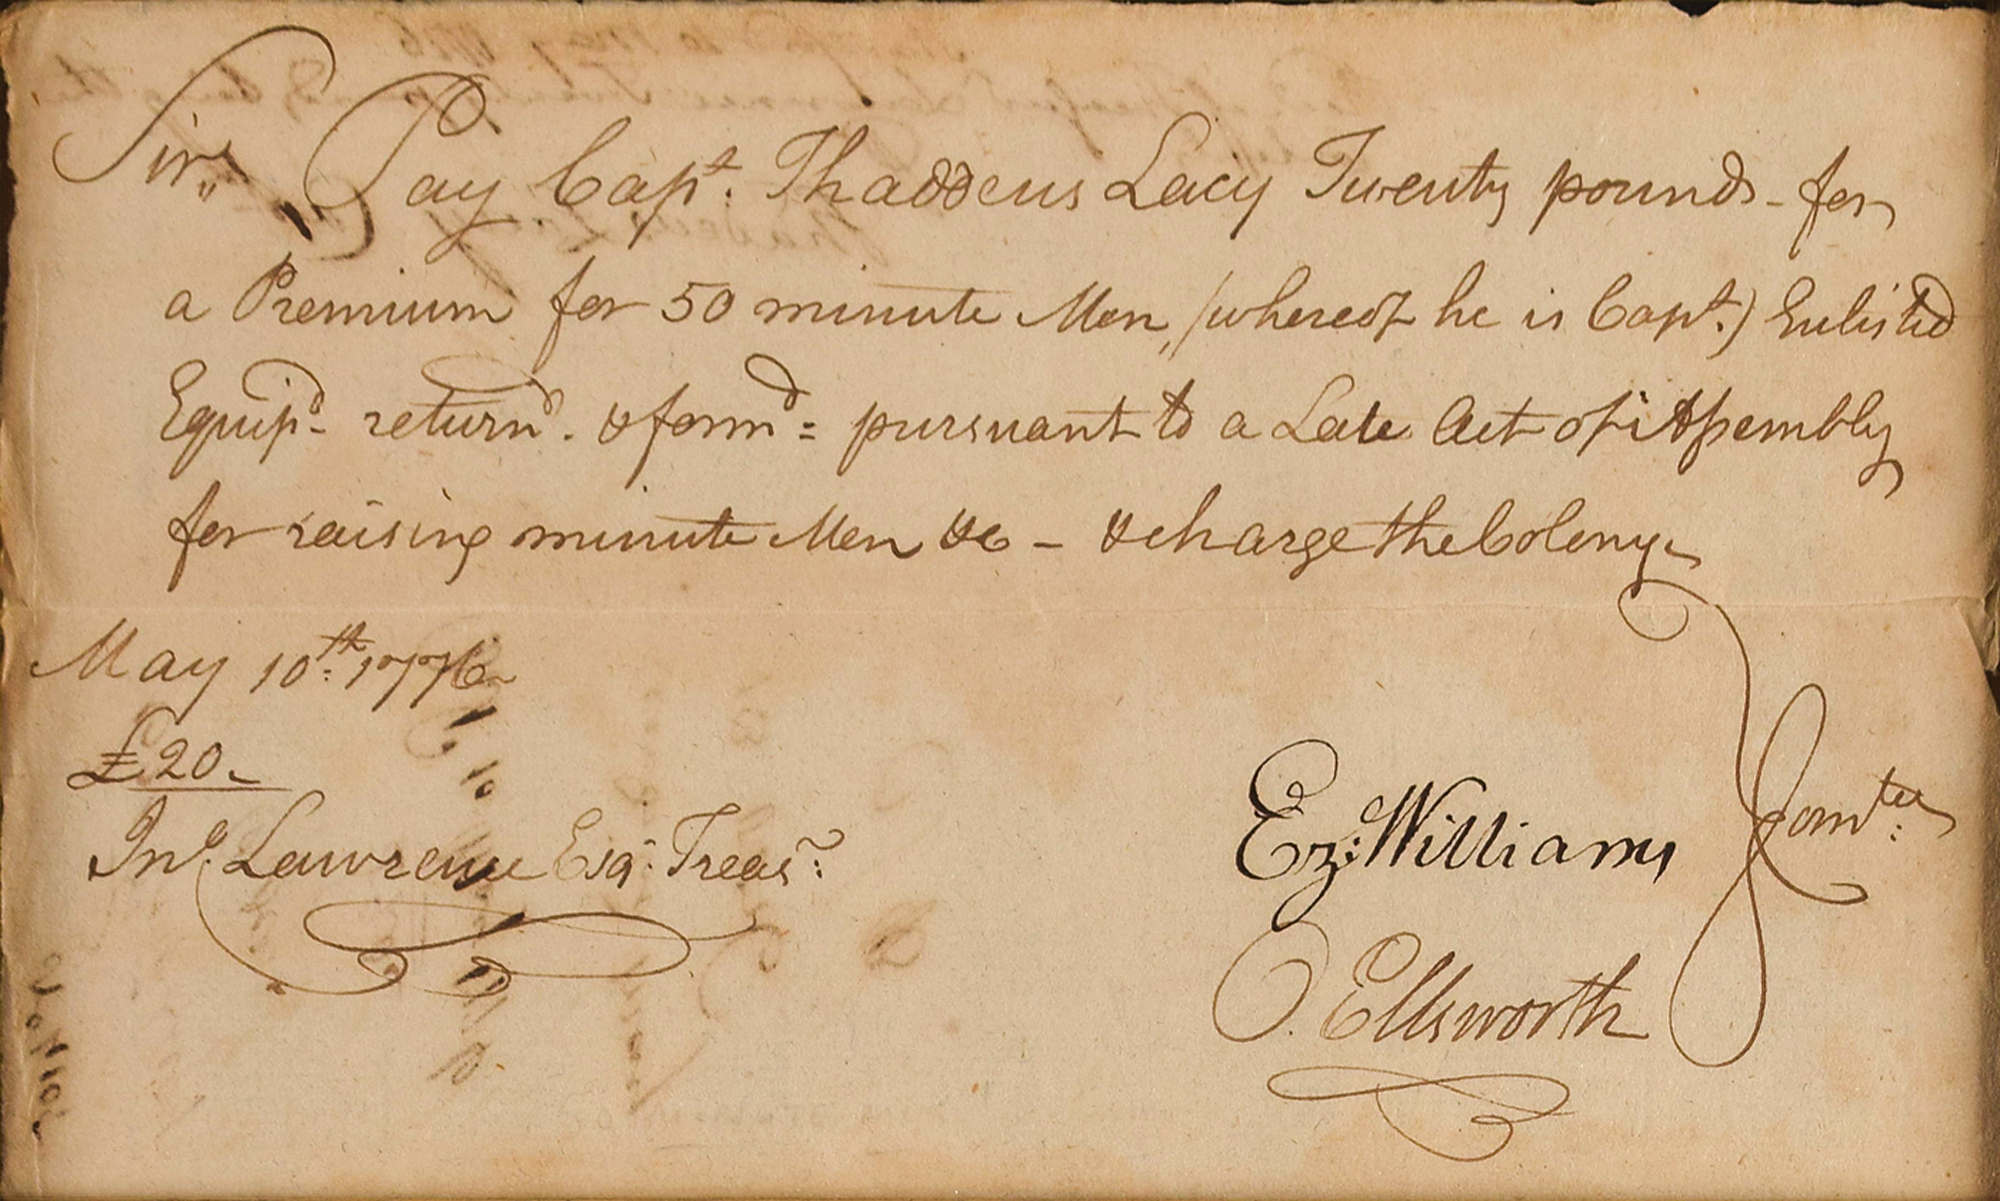 Sir,, Pay Capt. Thaddeus Lacy Twenty pounds - for
a Premium for 50 minute Men, (whereof he is Capt.) Enlisted
Equip'd - return'd. & form'd = pursuant to a Late Act of Assembly
for raising minute Men &c - & charge the Colony
May 10th: 1776
£20 -
Jno. Lawrence Esqr. Treasr:
Ez: Williams
O. Ellsworth
Comtee: